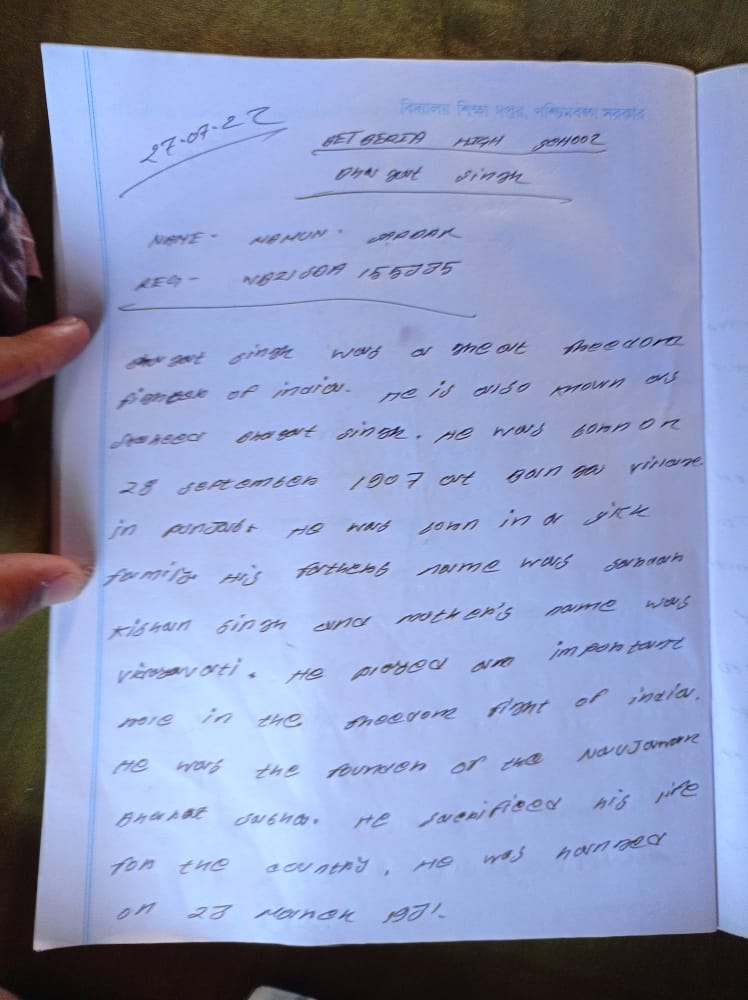 বিদ্যালয় শিক্ষা দপ্তর, পশ্চিমবঙ্গ সরকার
27-07-22
BETBERIA HIGH SCHOOL
Bhagat Singh
NAME - MAMUN SARDAR
REG -
Bhagat Singh was a great freedom
fighter of india. He is also known as
Shaheed Bhagat Singh. He was born on
28 September 1907 at Banga village
in punjab. He was born in a sikk
family. His fathers name was Sardar
Kishan Singh and mother's name was
Vidyavati. He played an important
role in the freedom fight of india.
He was the founder of the Naujawan
Bharat Sabha. He sacrificed his life
for the country. He was hanged
on 23 March 1931.